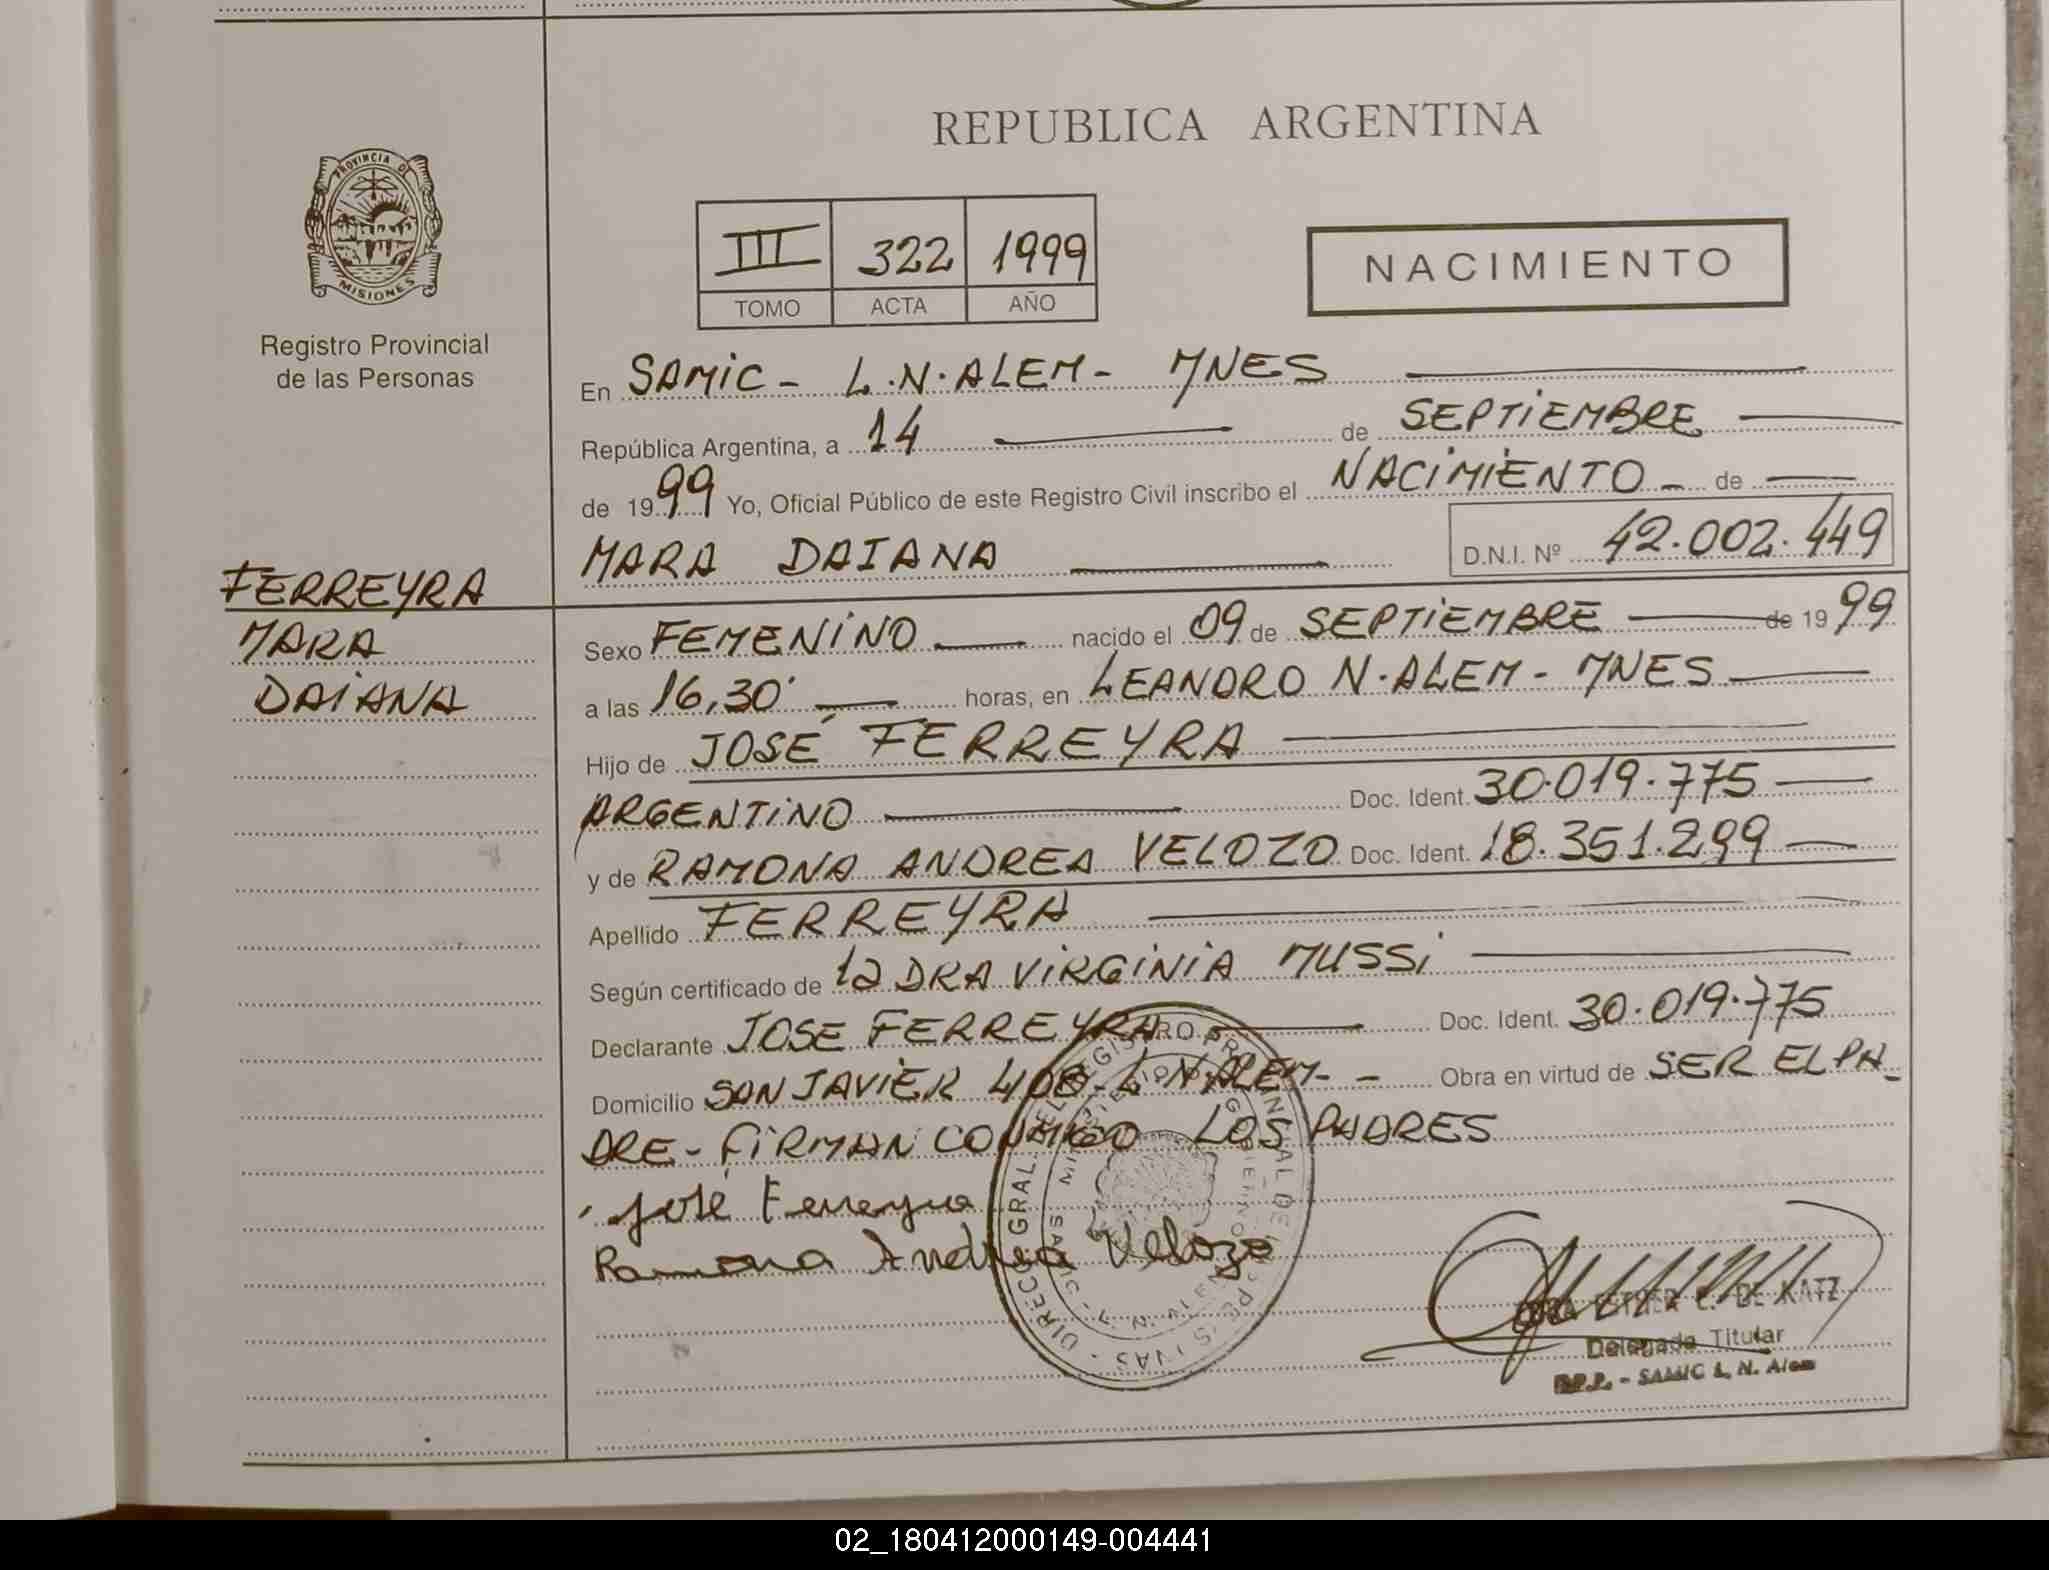 REPUBLICA ARGENTINA
PROVINCIA DE
MISIONES
Registro Provincial
de las Personas
III 322 1999
TOMO ACTA AÑO
NACIMIENTO
En SAMIC - L.N. ALEM - MNES
República Argentina, a 14 de SEPTIEMBRE
de 1999 Yo, Oficial Público de este Registro Civil inscribo el NACIMIENTO - de
MARA DAIANA D.N.I. Nº 42.002.449
FERREYRA
MARA
DAIANA
Sexo FEMENINO nacido el 09 de SEPTIEMBRE de 1999
a las 16,30' horas, en LEANDRO N. ALEM - MNES
Hijo de JOSÉ FERREYRA
ARGENTINO Doc. Ident. 30.019.775
y de RAMONA ANDREA VELOZO Doc. Ident. 18.351.299
Apellido FERREYRA
Según certificado de la DRA VIRGINIA MUSSI
Declarante JOSE FERREYRA Doc. Ident. 30.019.775
Domicilio SAN JAVIER 408 - L.N. ALEM - - Obra en virtud de SER EL PA-
DRE - FIRMAN CONMIGO LOS PADRES
José Ferreyra
Ramona Andrea Velozo
DE KATZ
Delegado Titular
R.P.P. - SAMIC L. N. Alem
02_180412000149-004441